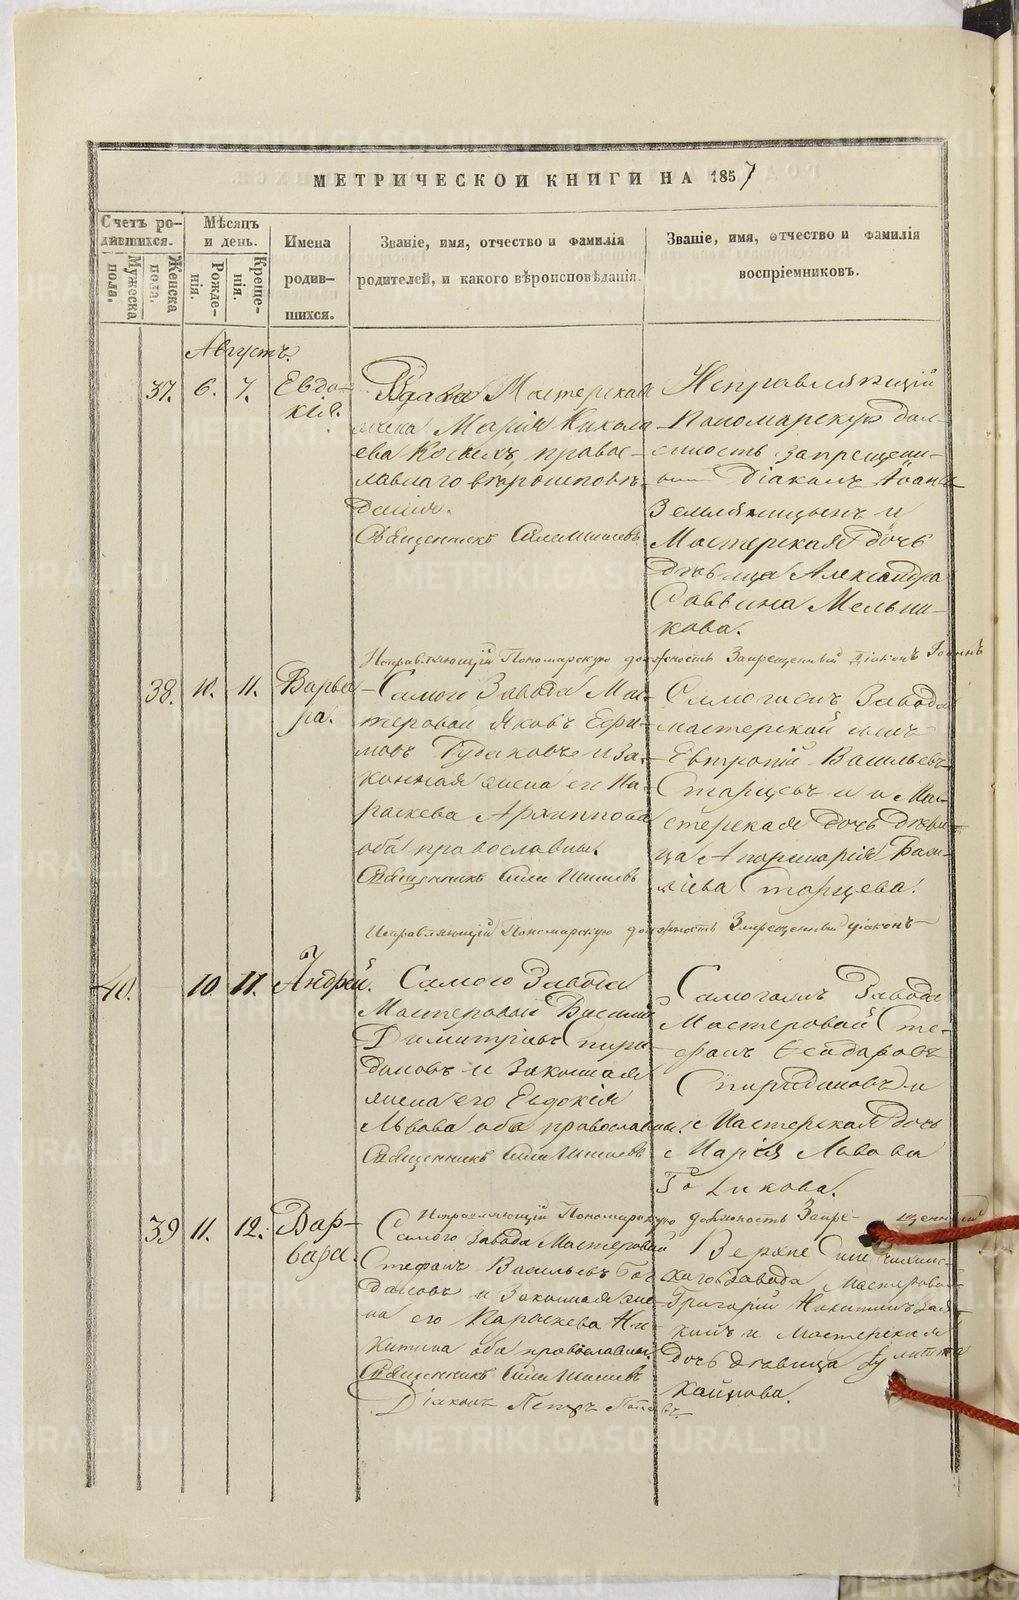 МЕТРИЧЕСКОЙ КНИГИ НА 1857
Счетъ ро-
дившихся.
Мужеска
пола.
Женска
пола.
Мѣсяцъ
и день.
Рожде-
нія.
Креще-
нія.
Имена
родив-
шихся.
Званіе, имя, отчество и фамилія
родителей, и какого вѣроисповѣданія.
Званіе, имя, отчество и фамилія
воспріемниковъ.
Августъ.
37. 6. 7.
Евдо-
кія.
Мастерская
жена Марія Никола-
ева правос-
лавнаго вѣроисповѣ-
данія.
Священникъ
Исправляющій
Пономарскую дол-
жность запрещенн-
ый Діаконъ Іоаннъ
Земляницынъ и
Мастерская дочь
дѣвица Александра
Саввина Мельни-
кова.
Исправляющій Пономарскую должность Запрещенный Діаконъ Іоаннъ
38. 11. 11.
Варва-
ра.
Самого Завода Мас-
теровой Яковъ Ефи-
мовъ и за-
конная жена его Па-
раскева Архиппова
оба православны.
Священникъ
Самого Завода
мастерской сынъ
Евтропій Васильевъ
Старцевъ и Мас-
терская дочь дѣви-
ца Апол­линарія Васи-
льева Старцева.
Исправляющій Пономарскую должность Запрещенный діаконъ
40. 10. 11.
Андрей.
Самого Завода
Мастеровой Василій
Димитріевъ Спири-
доновъ и Законная
жена его Евдокія
Львова оба православны.
Священникъ
Завода
Мастеровой Сте-
фанъ
Спиридоновъ и
Мастерская дочь
Марія Львова
Исправляющій Пономарскую должность Запре- щенный
39 11. 12.
Вар-
вара.
Самого Завода Мастеровой
Стефанъ Васильевъ Бог-
дановъ и Законная же-
на его Параскева Ни-
китина оба православны.
Священникъ
Діаконъ Петръ
Верхне
Завода Мастеровой
Григорій Никитинъ
и Мастерская
дочь дѣвица